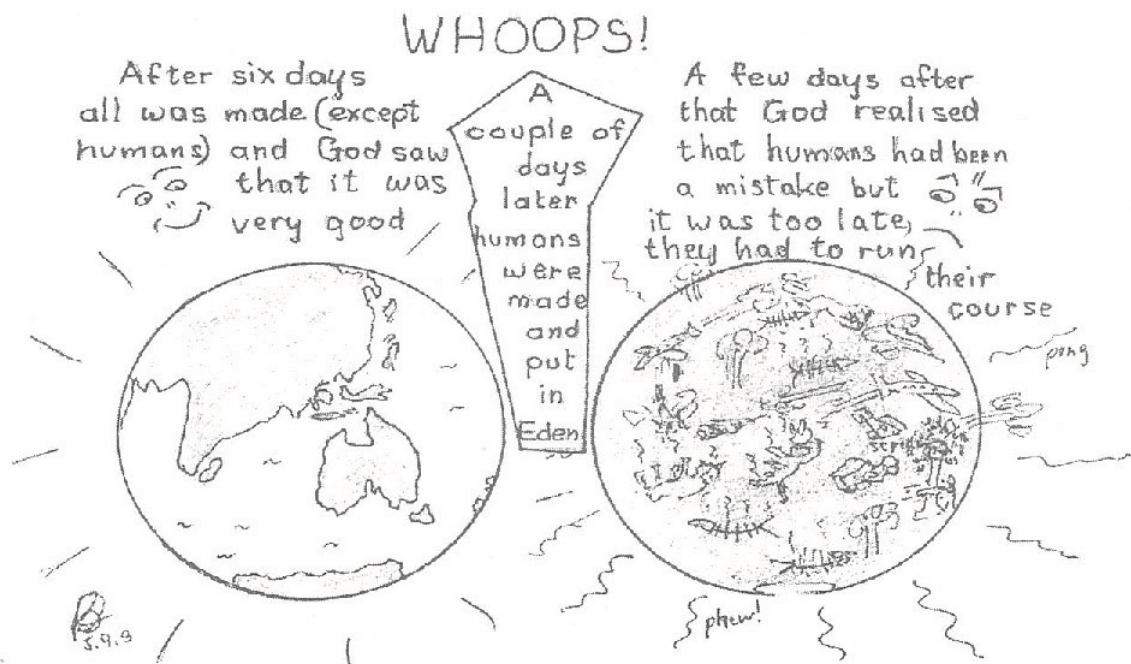 WHOOPS!
After six days
all was made (except
humans) and God saw
that it was
very good
A
couple of
days
later
humans
were
made
and
put
in
Eden
A few days after
that God realised
that humans had been
a mistake but
it was too late,
they had to run
their
course
pong
phew!
5.9.9